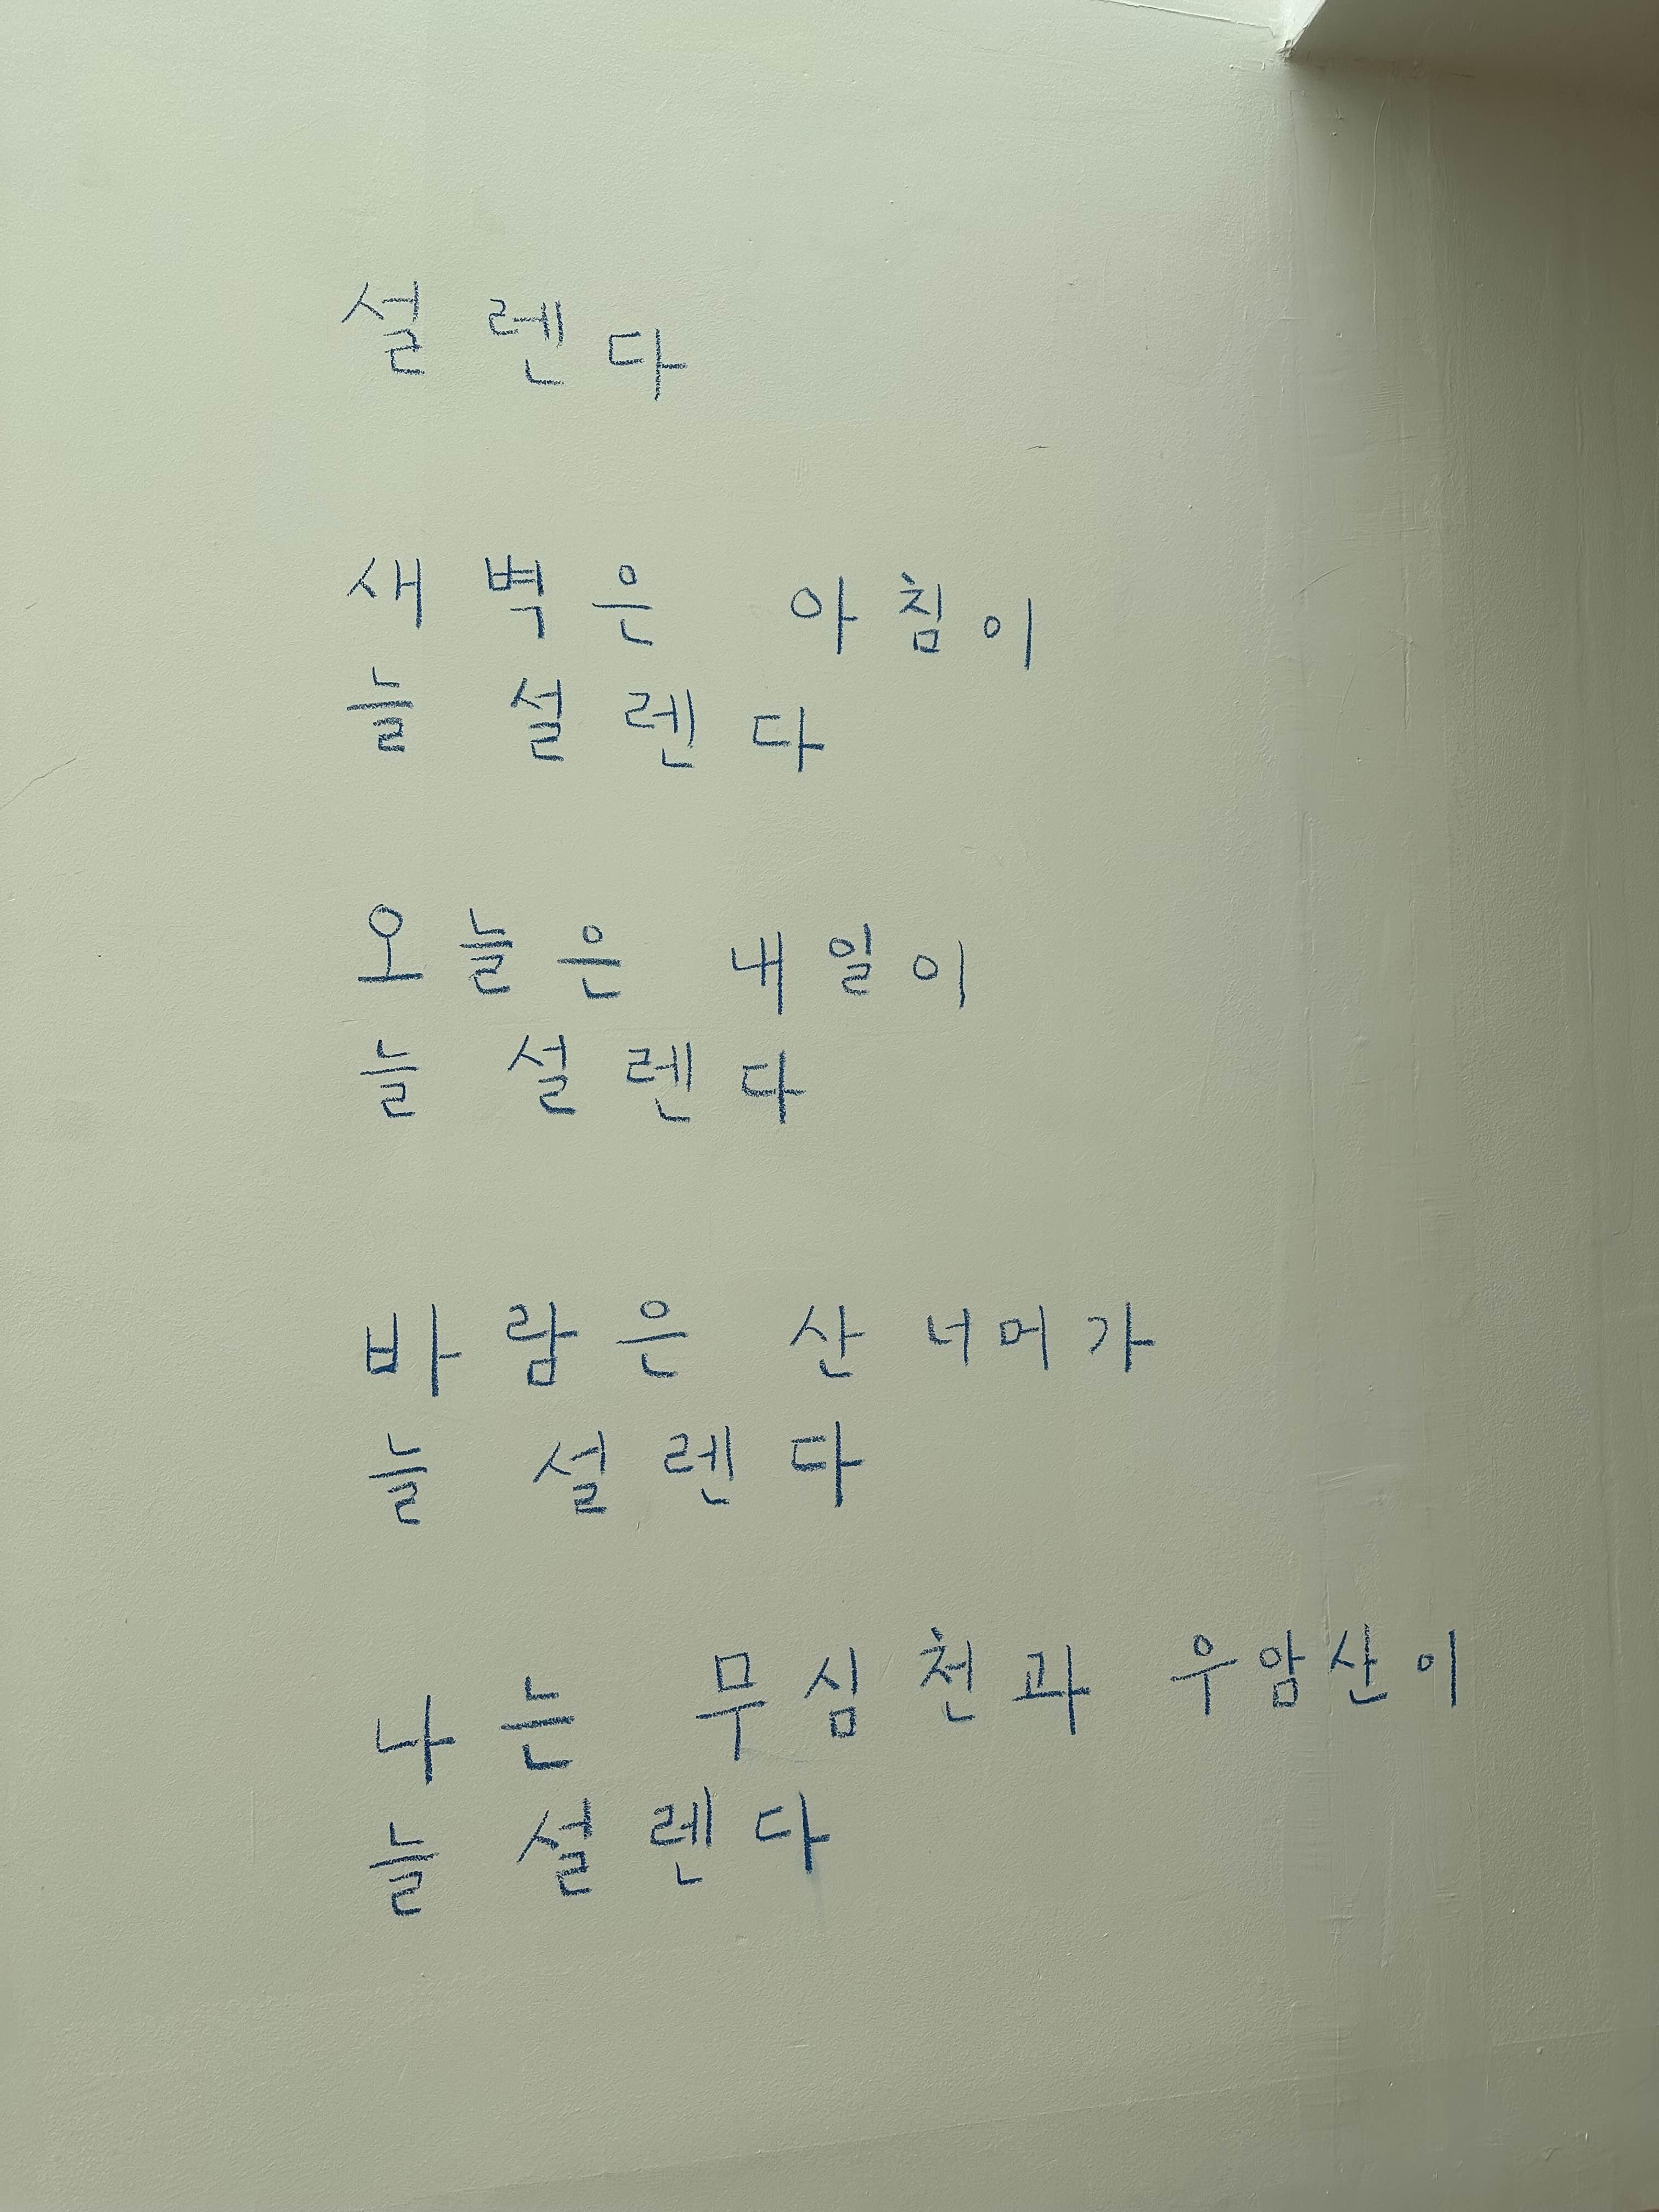 설렌다
새벽은 아침이
늘 설렌다
오늘은 내일이
늘 설렌다
바람은 산 너머가
늘 설렌다
나는 무심천과 우암산이
늘 설렌다